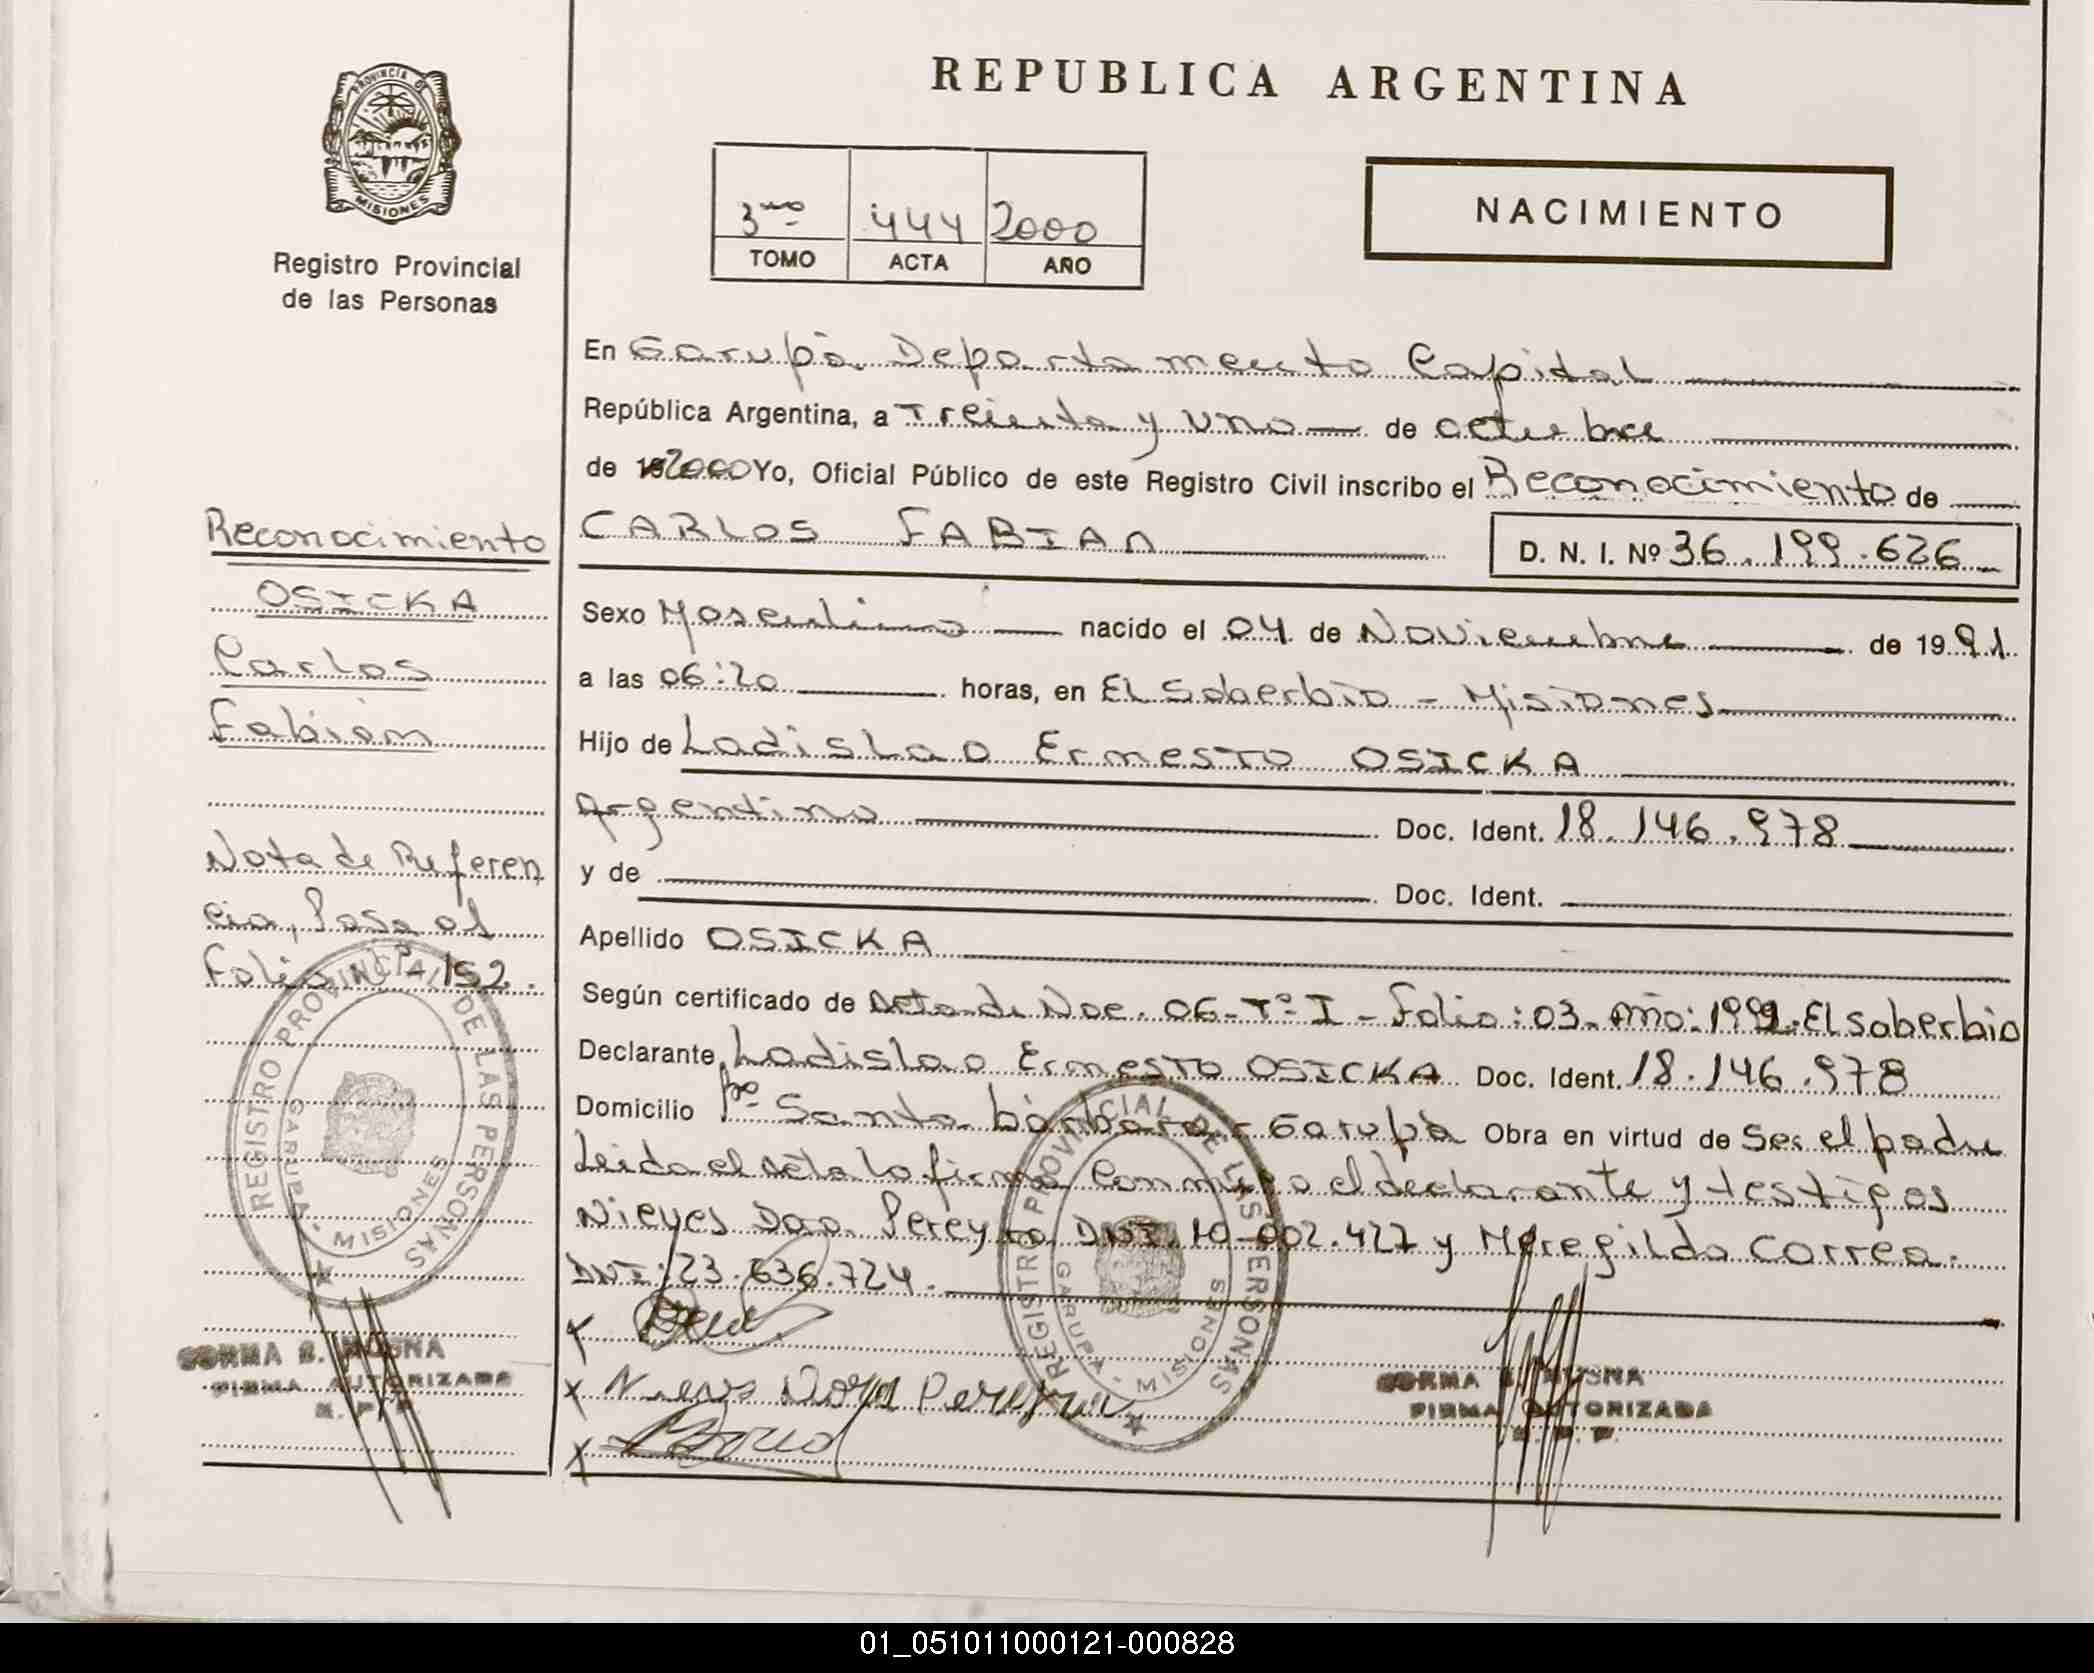 REPUBLICA ARGENTINA
PROVINCIA DE
MISIONES
Registro Provincial
de las Personas
3ro 444 2000
TOMO ACTA AÑO
NACIMIENTO
En Garupá Departamento Capital
República Argentina, a Treinta y Uno de octubre
de 2000 Yo, Oficial Público de este Registro Civil inscribo el Reconocimiento de
CARLOS FABIAN
D. N. I. Nº 36.199.626
Sexo Masculino nacido el 04 de Noviembre de 1991
a las 06:20 horas, en El Soberbio - Misiones
Hijo de Ladislao Ernesto OSICKA
Argentino Doc. Ident. 18.146.978
y de Doc. Ident.
Apellido OSICKA
Según certificado de Acta de Nac. 06 - Tº I - Folio: 03 - Año: 1992. El soberbio
Declarante Ladislao Ernesto OSICKA Doc. Ident. 18.146.978
Domicilio Bº Santa bárbara - Garupá Obra en virtud de Ser el padre
Leida el Acta la firma Conmigo el declarante y testigos
Nieves Dora Pereyra DNI. 10.002.427 y Meregildo Correa.
DNI: 23.636.724.
x
x Nieves Dora Pereyra
x
Reconocimiento
OSICKA
Carlos
Fabián
Nota de Referen
cia, Pasa al
Folio Nº 152.
REGISTRO PROVINCIAL DE LAS PERSONAS
GARUPA - MISIONES
FIRMA AUTORIZADA
R. P. P.
REGISTRO PROVINCIAL DE LAS PERSONAS
GARUPA - MISIONES
FIRMA AUTORIZADA
R. P. P.
01_051011000121-000828